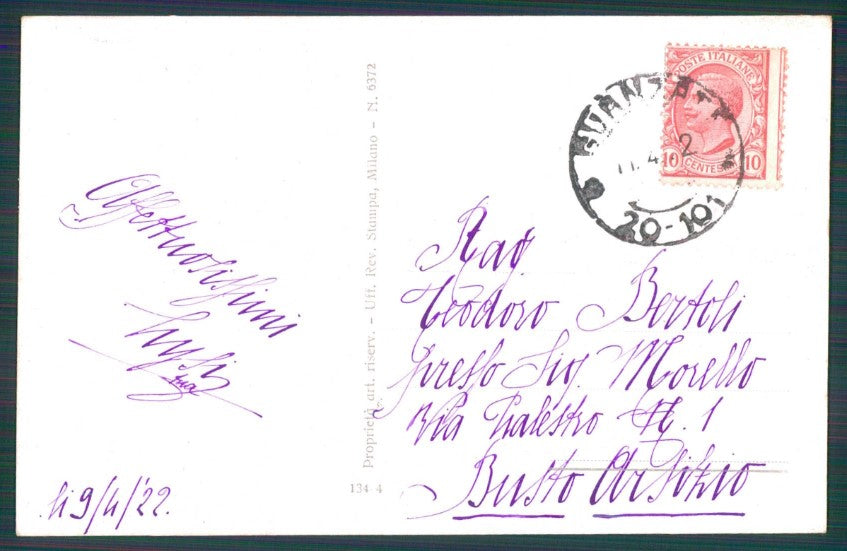 Affettuosissimi
li 9/4/'22.
Proprietà art. riserv. - Uff. Rev. Stampa, Milano - N. 6372
134-4
POSTE ITALIANE
10 CENTESIMI 10
20-101
Rag.
Teodoro Bertoli
presso Sig. Morello
Via Palestro N. 1
Busto Arsizio